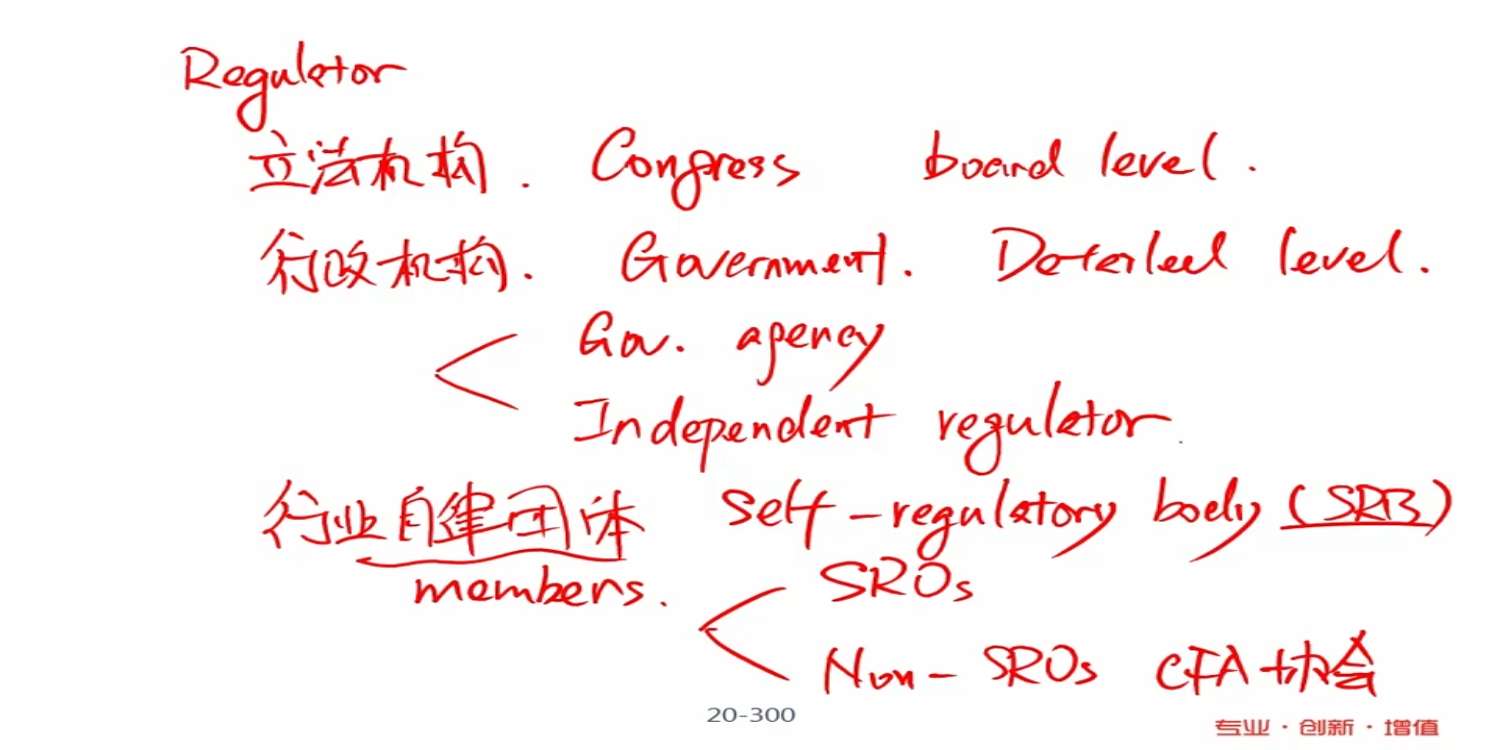 Regulator
立法机构. Congress board level.
行政机构. Government. Detailed level.
Gov. agency
Independent regulator.
行业自律团体 Self-regulatory body (SRB)
members.
SROs
Non-SROs CFA协会
20-300
专业·创新·增值